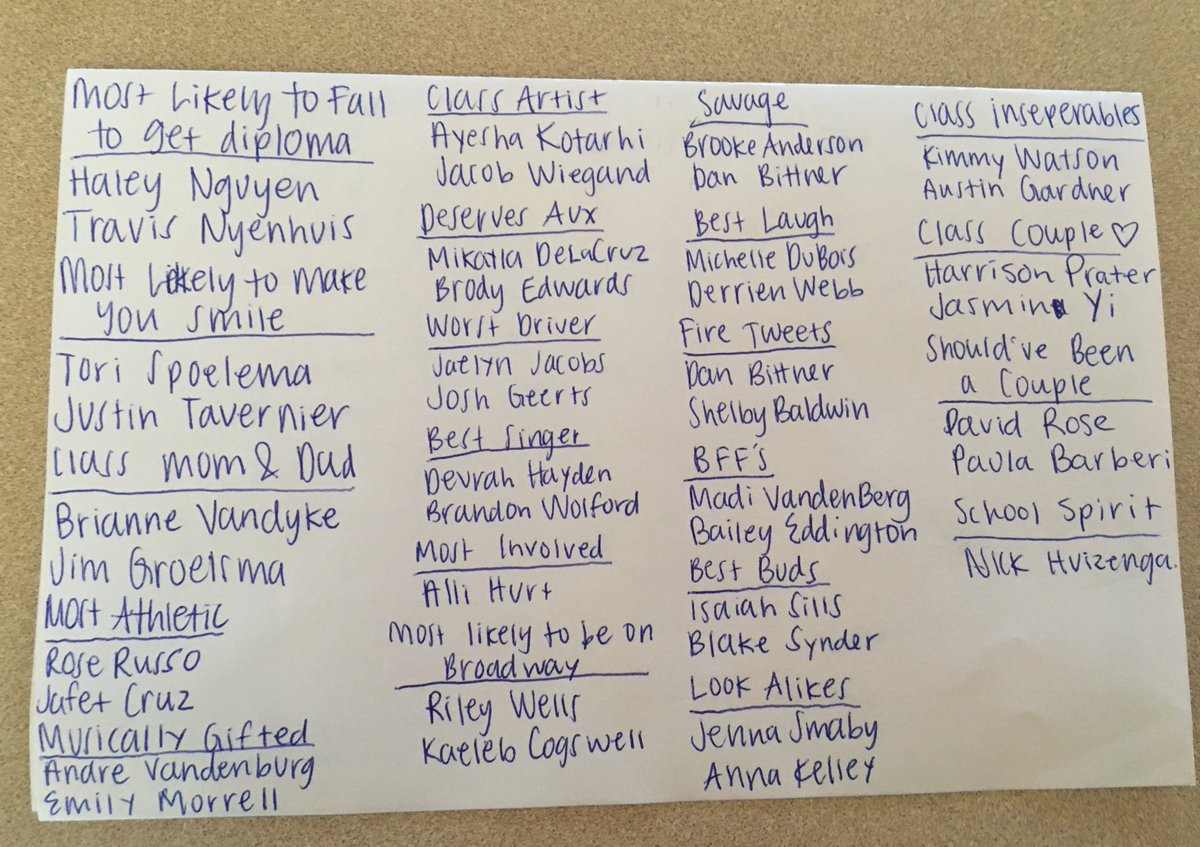 Most Likely to Fall
to get diploma
Haley Nguyen
Travis Nyenhuis
Most Likely to make
you smile
Tori Spoelema
Justin Tavernier
Class mom & Dad
Brianne Vandyke
Jim Groelsma
Most Athletic
Rose Russo
Jafet Cruz
Musically Gifted
Andre Vandenburg
Emily Morrell
Class Artist
Ayesha Kotarhi
Jacob Wiegand
Deserves Aux
Mikayla DeLaCruz
Brody Edwards
Worst Driver
Jaelyn Jacobs
Josh Geerts
Best Singer
Devrah Hayden
Brandon Wolford
Most Involved
Alli Hurt
Most likely to be on
Broadway
Riley Wells
Kaeleb Cogswell
Savage
Brooke Anderson
Dan Bittner
Best Laugh
Michelle DuBois
Derrien Webb
Fire Tweets
Dan Bittner
Shelby Baldwin
BFF's
Madi VandenBerg
Bailey Eddington
Best Buds
Isaiah Sills
Blake Synder
Look Alikes
Jenna Smaby
Anna Kelley
Class inseperables
Kimmy Watson
Austin Gardner
Class Couple ♡
Harrison Prater
Jasmin Yi
Should've Been
a Couple
David Rose
Paula Barberi
School Spirit
Nick Huizenga.